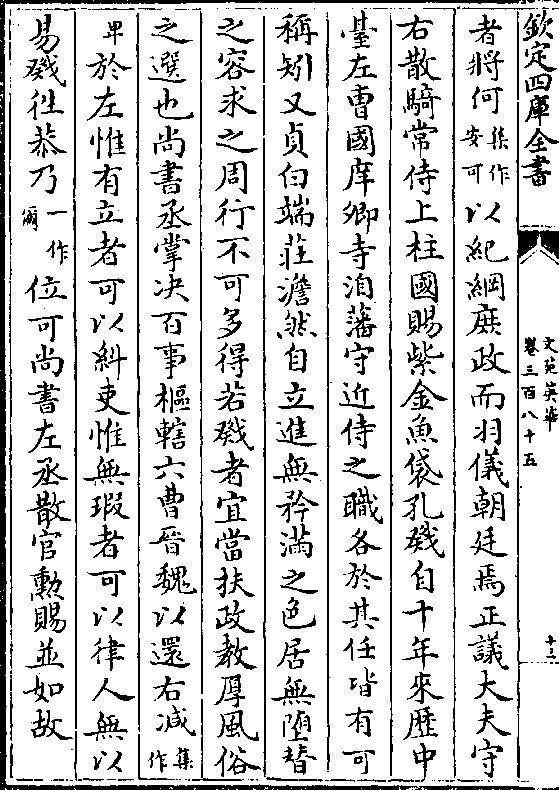 欽定四庫全書
文苑英華
卷三百八十五
十三
者將何集作安可以紀綱庶政而羽儀朝廷焉正議大夫守
右散騎常侍上柱國賜紫金魚袋孔戣自十年來歴中
臺左曹國庠卿寺洎藩守近侍之職各於其任皆有可
稱矧又貞白端莊澹然自立進無矜滿之色居無墮替
之容求之周行不可多得若戣者宜當扶政教厚風俗
之選也尚書丞掌决百事樞轄六曹晉魏以還右减集作
卑於左惟有立者可以糾吏惟無瑕者可以律人無以
易戣徃恭乃一作爾位可尚書左丞散官勲賜並如故